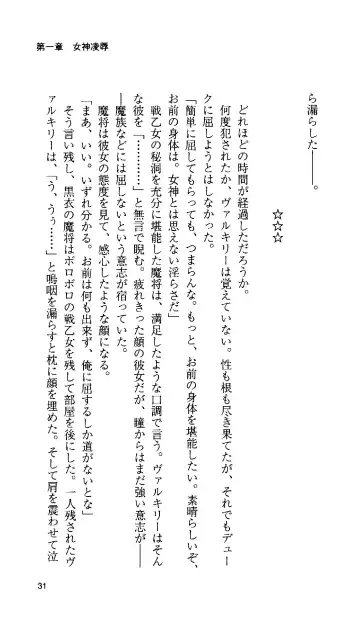 第一章　女神凌辱
ら漏らした――。
☆☆☆
どれほどの時間が経過しただろうか。
何度犯されたか、ヴァルキリーは覚えていない。性も根も尽き果てたが、それでもデュー
クに屈しようとはしなかった。
「簡単に屈してもらっても、つまらんな。もっと、お前の身体を堪能したい。素晴らしいぞ、
お前の身体は。女神とは思えない淫らさだ」
戦乙女の秘洞を充分に堪能した魔将は、満足したような口調で言う。ヴァルキリーはそん
な彼を「…………」と無言で睨む。疲れきった顔の彼女だが、瞳からはまだ強い意志が――
――魔族などには屈しないという意志が宿っていた。
魔将は彼女の態度を見て、感心したような顔になる。
「まあ、いい。いずれ分かる。お前は何も出来ず、俺に屈するしか道がないとな」
そう言い残し、黒衣の魔将はボロボロの戦乙女を残して部屋を後にした。一人残されたヴ
ァルキリーは、「う、うぅ……」と嗚咽を漏らすと枕に顔を埋めた。そして肩を震わせて泣
31